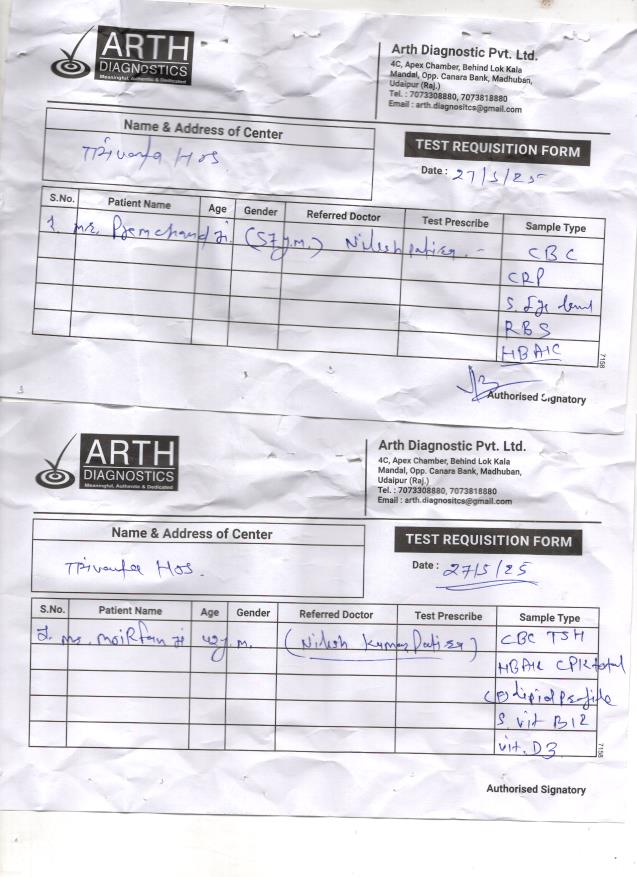 ARTH
DIAGNOSTICS
Meaningful, Authentic & Dedicated
Arth Diagnostic Pvt. Ltd.
4C, Apex Chamber, Behind Lok Kala
Mandal, Opp. Canara Bank, Madhuban,
Udaipur (Raj.)
Tel. : 7073308880, 7073818880
Email : arth.diagnositcs@gmail.com
Name & Address of Center
TEST REQUISITION FORM
Hos
Date : 27/5/25
S.No. Patient Name Age Gender Referred Doctor Test Prescribe Sample Type
1. mr. Premchand ji. (57y.m.) Nilesh patidar. - CBC
CRP
S. Ige level
RBS
HBA1C
7158
Authorised Signatory
ARTH
DIAGNOSTICS
Meaningful, Authentic & Dedicated
Arth Diagnostic Pvt. Ltd.
4C, Apex Chamber, Behind Lok Kala
Mandal, Opp. Canara Bank, Madhuban,
Udaipur (Raj.)
Tel. : 7073308880, 7073818880
Email : arth.diagnositcs@gmail.com
Name & Address of Center
TEST REQUISITION FORM
Hos.
Date : 27/5/25
S.No. Patient Name Age Gender Referred Doctor Test Prescribe Sample Type
mr. ji y.m. (Nilesh Kumar Patidar) CBC TSH
HBA1C CPK total
(F) lipid profile
S vit B12
vit. D3
7158
Authorised Signatory